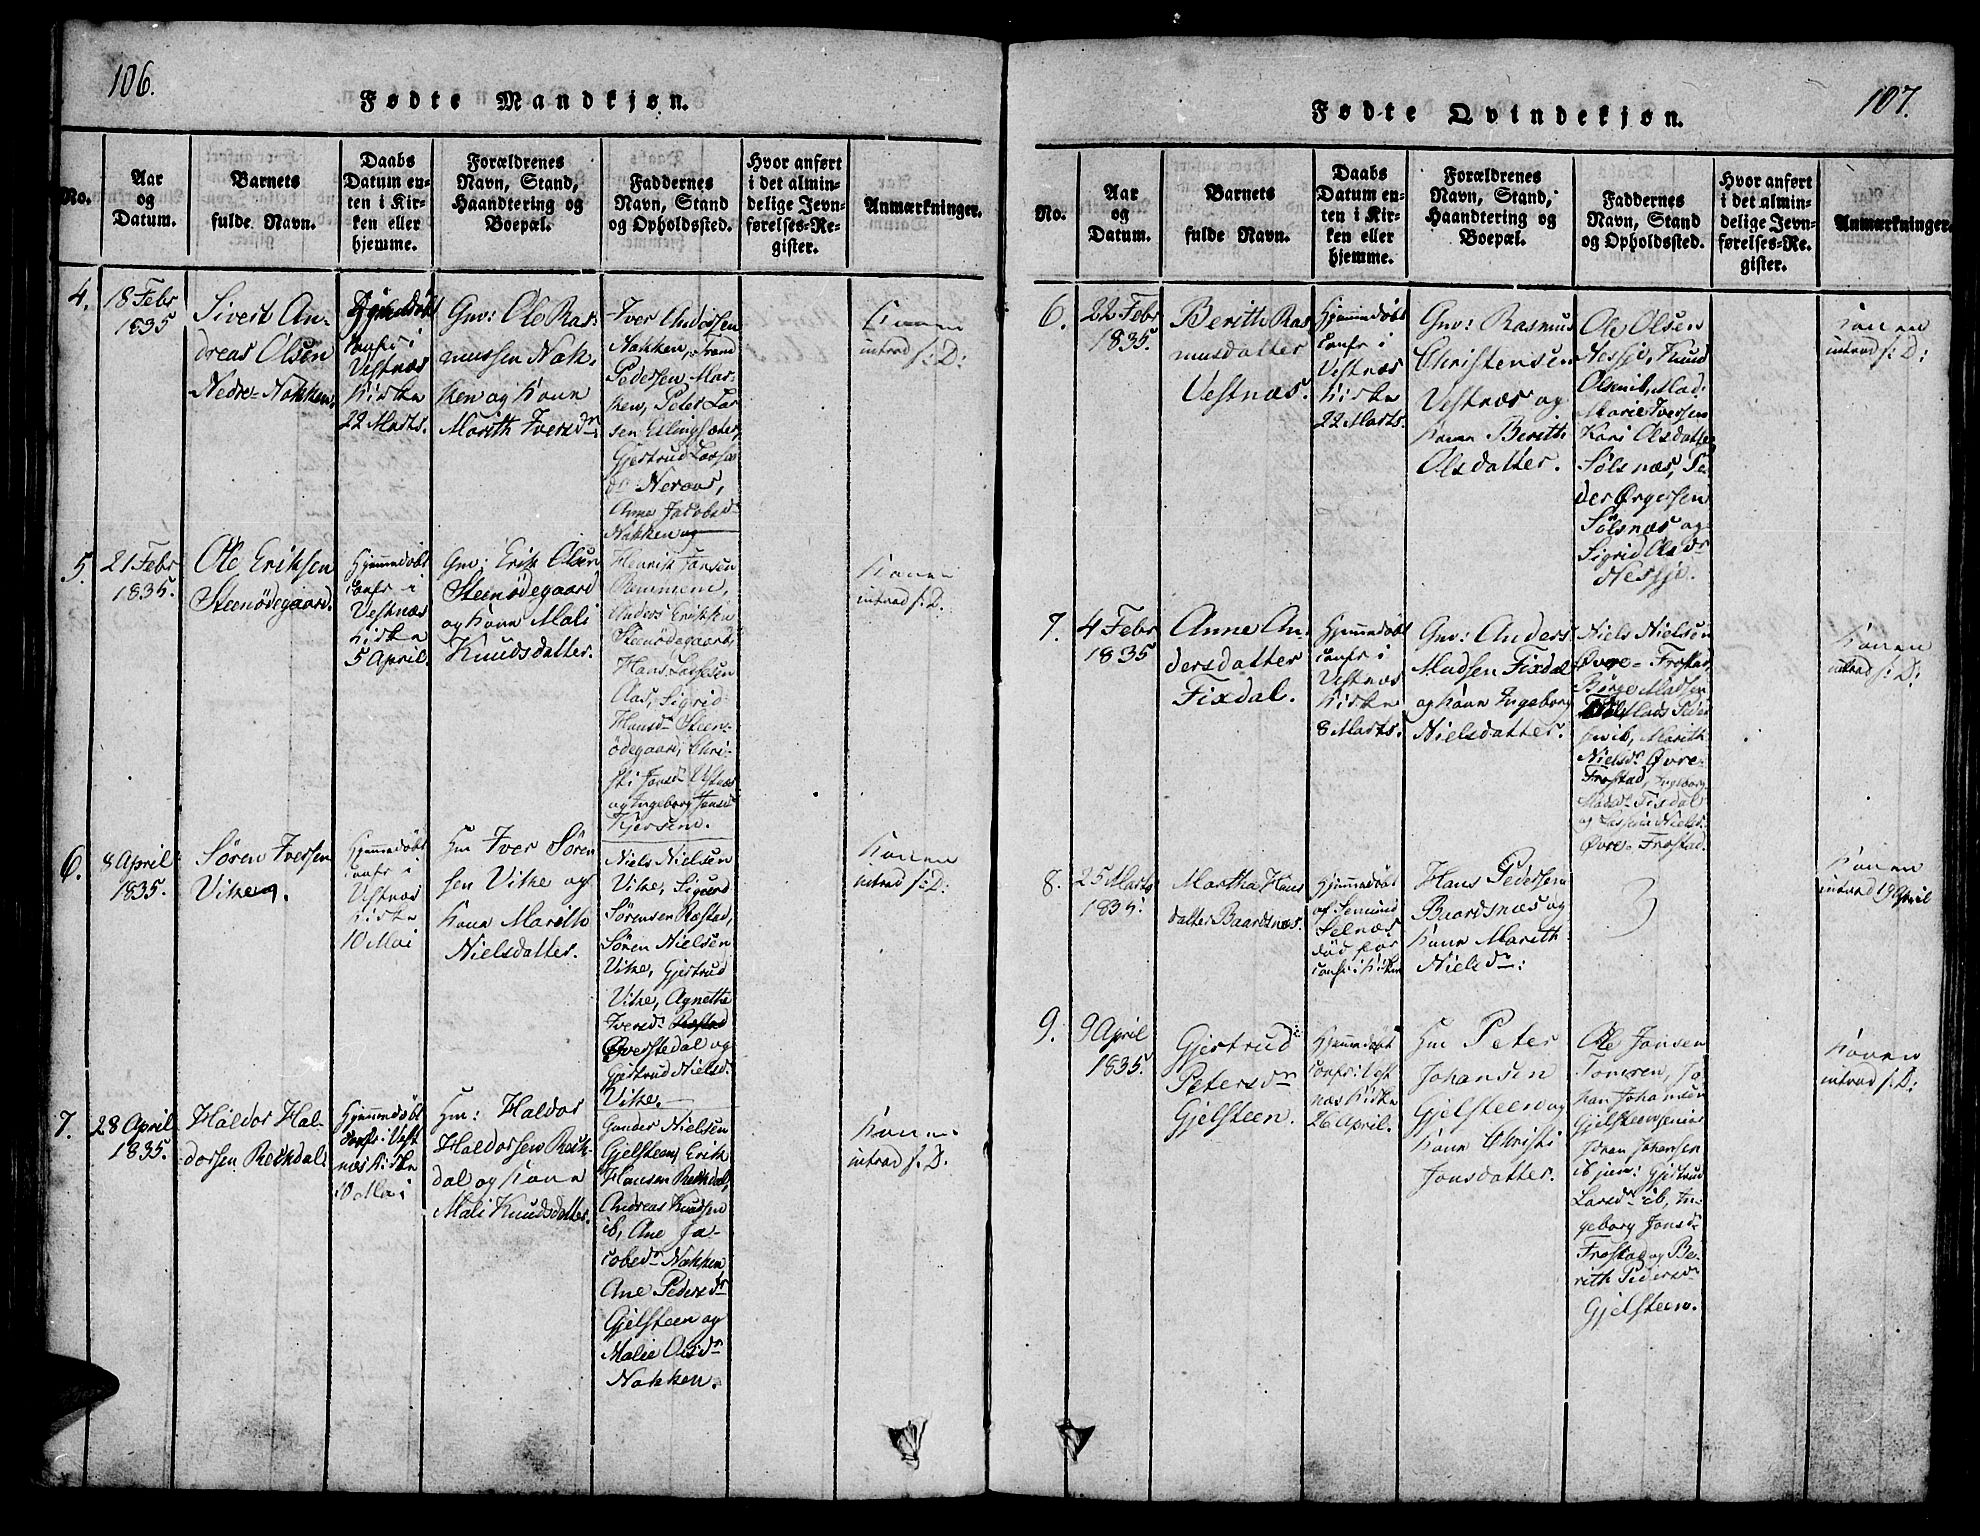 106.
Fødte Mandkjøn.
No.
Aar
og
Datum.
Barnets
fulde Navn.
Daabs
Datum en-
ten i Kir-
ken eller
hjemme.
Forældrenes
Navn, Stand,
Haandtering og
Boepæl.
Faddernes
Navn, Stand
og Opholdssted.
Hvor anført
i det almin-
delige Jevn-
førelses-Re-
gister.
Anmærkninger.
4.
18 Febr
1835
Sivert An-
dreas Olsen
Nedre-Nakken.
Hjemmedøbt
confr i
Vestnæs
Kirke
22 Marts.
Gm: Ole Ras-
mussen Nak-
ken og Kone
Marith Iversdr
Iver Andersen
Nakken,
Pedersen Mar-
ken, Peter Lar-
sen Ellingsæter,
Gjertrud
Neraas,
Anne Jacobsdr
Nakken og
Konen
introd s: D:
5.
21 Febr
1835.
Ole Eriksen
Steenødegaard.
Hjemmedøbt
confr i
Vestnæs
Kirke
5 April.
Gm: Erik Olsen
Steenødegaard
og Kone Mali
Knudsdatter.
Henrik Jansen
Anders Eriksen
Steenødegaard,
Hans
Aas, Sigrid
Hansdr Steen-
ødegaard, Chri-
sti Jonsdr Vestnæs
og Ingeborg Jensdr
Kjersem.
Konen
introd s: D:
6.
8 April
1835.
Søren Iversen
Vike.
Hjemmedøbt
confr i
Vestnæs
Kirke
10 Mai
Hm Iver Søren
sen Vike og
Kone Marith
Nielsdatter.
Niels Nielsen
Vike, Sigurd
Sørensen Rostad,
Søren Nielsen
Vike, Gjertrud
Vike, Agnethe
Iversdr Rostad
Øverstedal og
Gjertrud Nielsdr
Vike.
Konen
introd s: D:
7.
28 April
1835.
Haldor Hal-
dorsen Rekdal.
Hjemmedøbt
confr i Vest
næs Kirke
10 Mai
Hm: Haldor
Haldorsen Rek-
dal og Kone
Mali Knudsdatter.
Gunder Nielsen
Gjelsteen, Erik
Hansen Rekdal,
Andreas Knudsen
ib, Ane Ja-
cobsdr Nakken
Ane Pedersdr
Gjelsteen og
Malie Olsdr
Nakken.
Konen
introd s: D:
107.
Fødte Qvindekjøn.
No.
Aar
og
Datum.
Barnets
fulde Navn.
Daabs
Datum en-
ten i Kir-
ken eller
hjemme.
Forældrenes
Navn, Stand,
Haandtering og
Boepæl.
Faddernes
Navn, Stand
og Opholdssted.
Hvor anført
i det almin-
delige Jevn-
førelses-Re-
gister.
Anmærkninger.
6.
22 Febr
1835.
Berith Ras
musdatter
Vestnæs.
Hjemmedøbt
confr i
Vestnæs
Kirke
22 Marts.
Gm: Rasmus
Christensen
Vestnæs og
Kone Berith
Olsdatter.
Ole Olsen
Nessje, Knud
Olsen ib, Mad:
Marie Iversen
Kari Olsdatter
Sølsnæs, Pe-
der Ørgersen
Sølsnæs og
Sigrid Olsdr
Nessje.
Konen
introd s: D:
7.
4 Febr
1835
Anne An-
dersdatter
Fixdal.
Hjemmedøbt
confr i
Vestnæs
Kirke
8 Marts.
Gm: Anders
Madsen Fixdal
og Kone Ingeborg
Nielsdatter.
Niels Nielsen
Øvre-Frostad,
Børge Madsen
Mads Peder
sen ib, Marith
Nielsdr Øvre-
Frostad, Ingeborg
Madsdr Fixdal
og Nielsdr
Øvre-Frostad.
Konen
introd s: D:
8.
25 Marts
1835.
Martha Hans
datter Baardsnæs.
Hjemmedøbt
af Semund
Selnæs
død før
confr i Kirken
Hans Pedersen
Baardsnæs og
Kone Marith
Nielsdr:
Konen
introd 19 April
9.
9 April
1835.
Gjertrud
Petersdr
Gjelsteen.
Hjemmedøbt
confr i Vest
næs Kirke
26 April.
Hm Peter
Johansen
Gjelsteen og
Kone Christi
Jonsdatter.
Ole Jansen
Tomren, Jo
han Johansen
Gjelsteen senior
Johan Johansen
ib jun: Gjertrud
Larsdr ib, In-
geborg Jonsdr
Frostad og Be-
rith Pedersdr
Gjelsteen.
Konen
introd s: D: